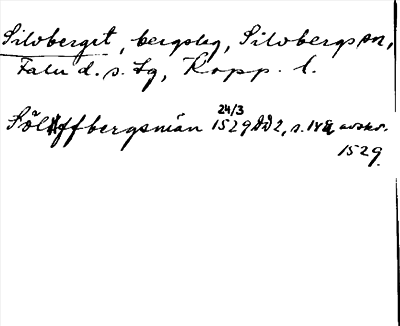 Silvberget, bergslag, Silvbergs sn,
Falu d. s. lg, Kopp. l.
24/3
Sölffbergsmän 1529 DD2, s. 188 avskr.
1529